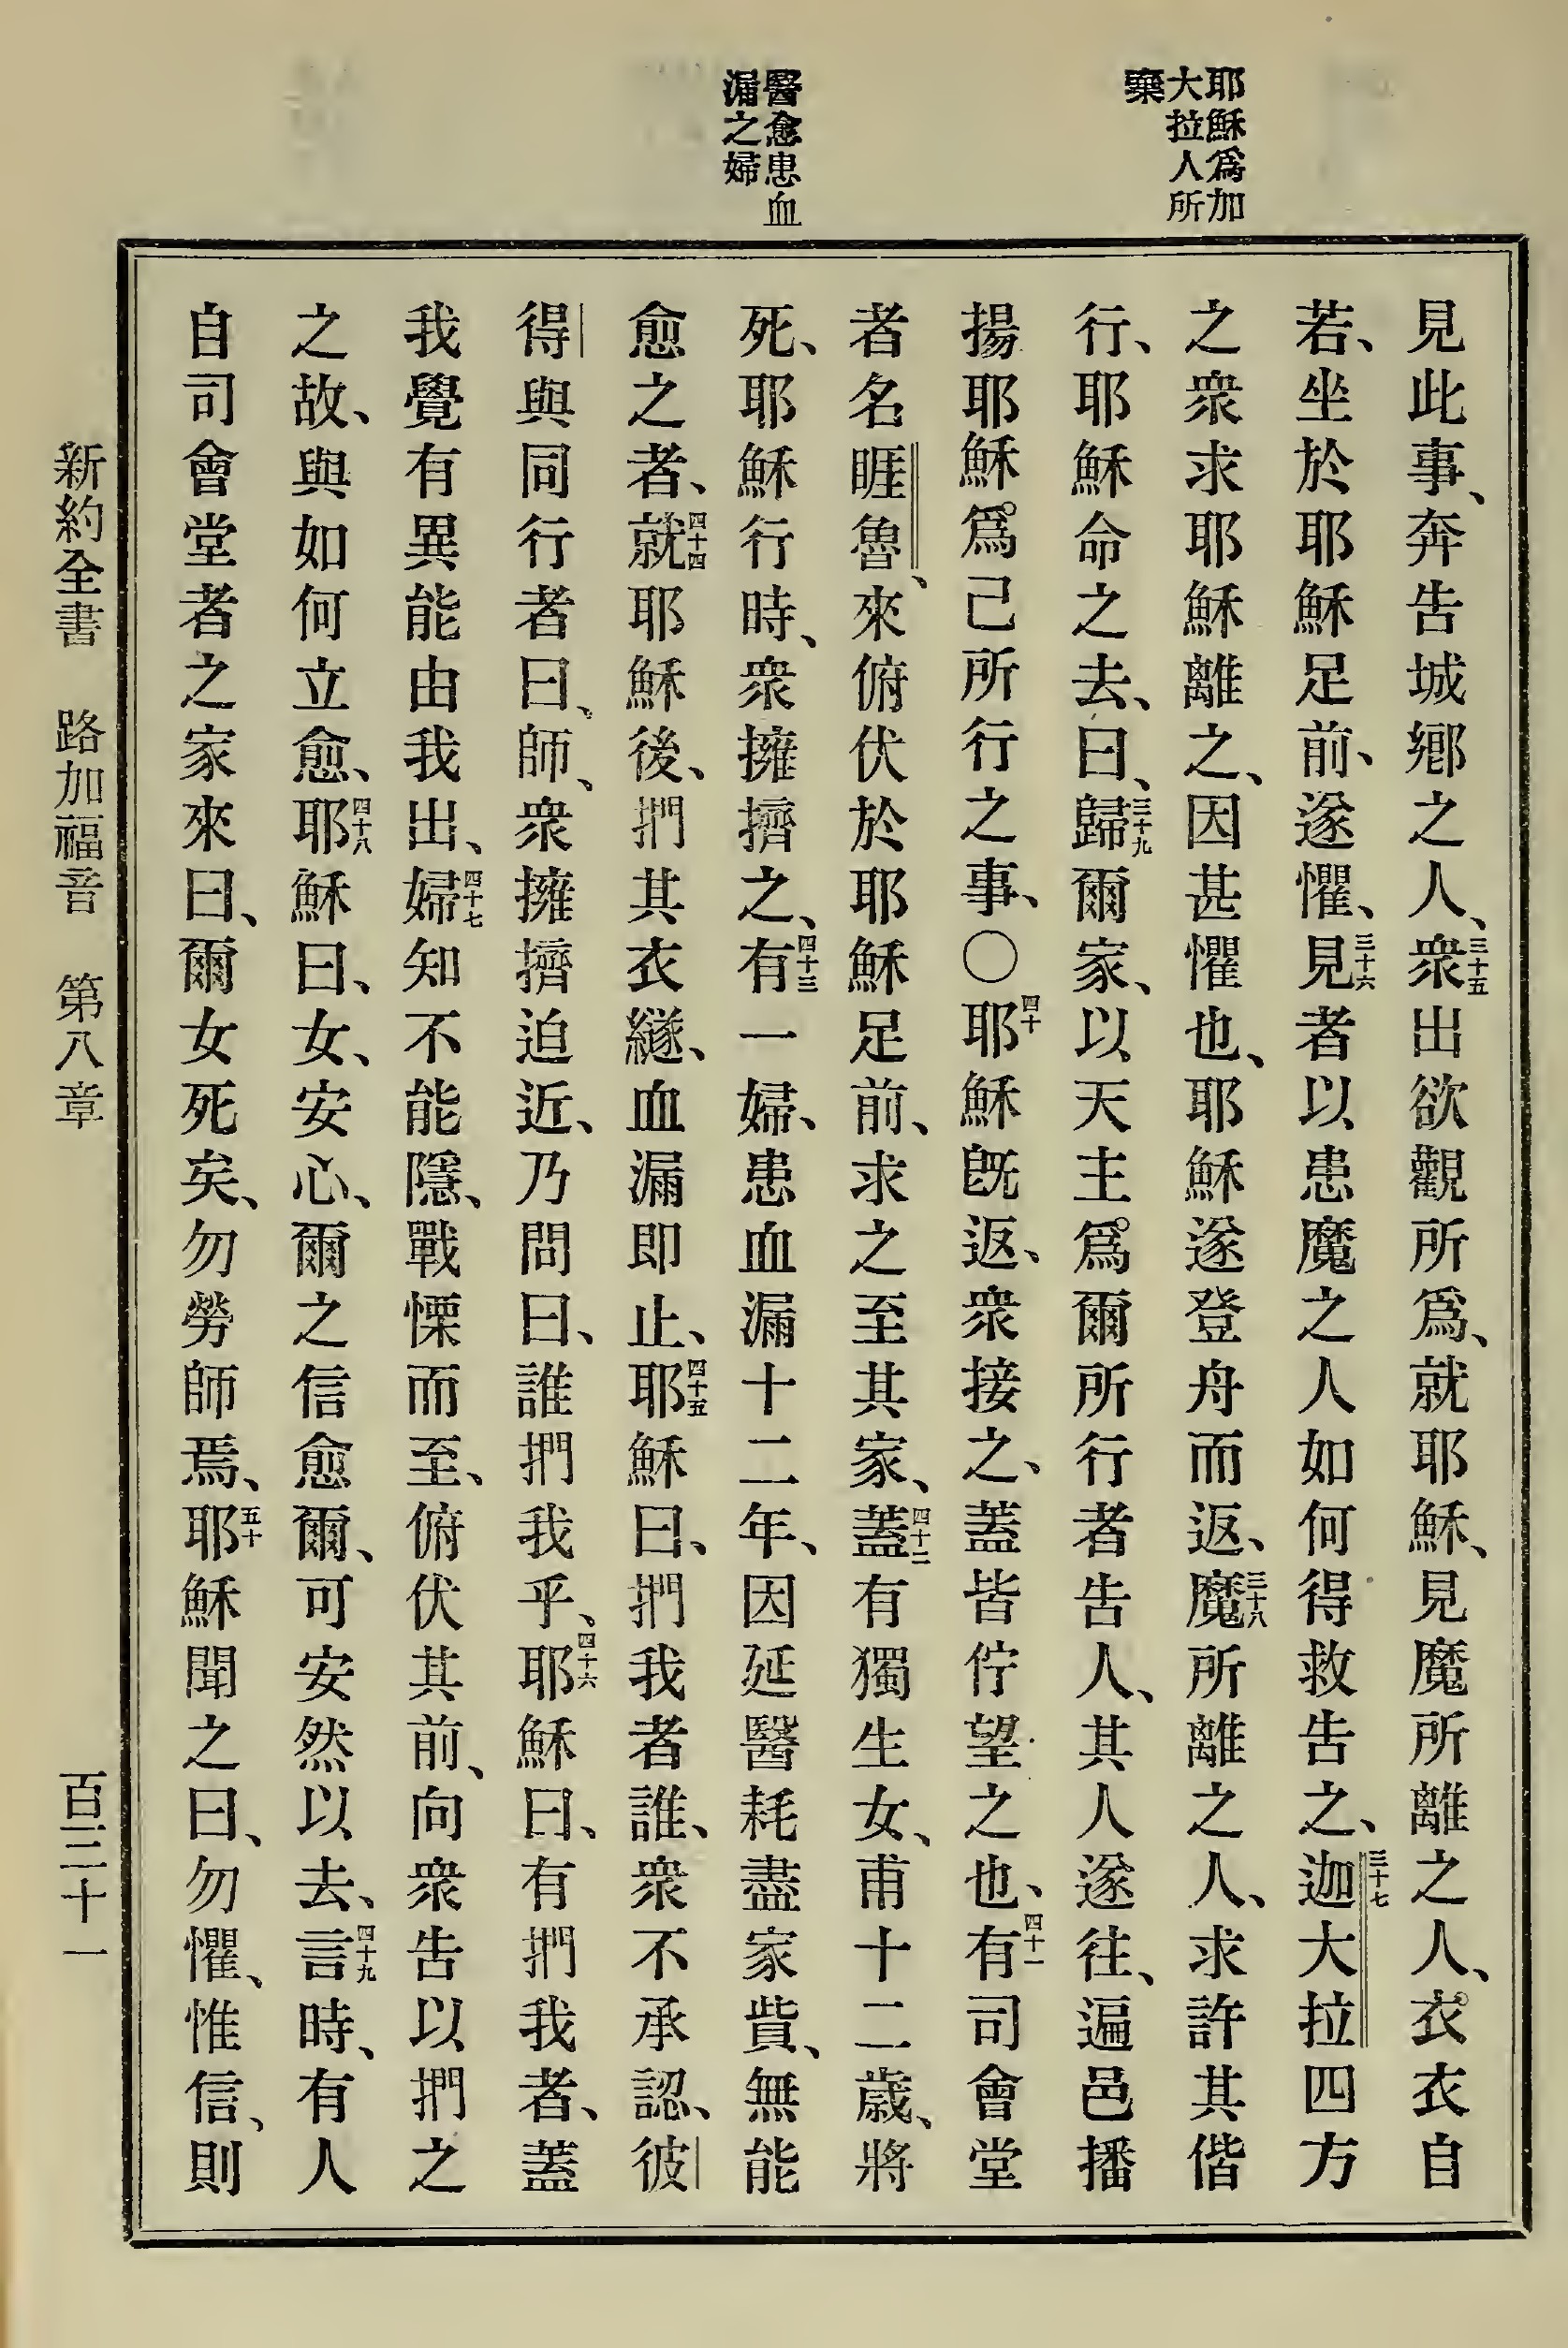 耶穌爲加
大拉人所
棄
醫愈患血
漏之婦
見此事、奔告城鄉之人、三十五衆出欲觀所爲、就耶穌、見魔所離之人、衣衣自
若、坐於耶穌足前、遂懼、三十六見者以患魔之人如何得救告之、三十七迦大拉四方
之衆求耶穌離之、因甚懼也、耶穌遂登舟而返、三十八魔所離之人、求許其偕
行、耶穌命之去、曰、三十九歸爾家、以天主爲爾所行者告人、其人遂往、遍邑播
揚耶穌爲己所行之事、〇四十耶穌旣返、衆接之、蓋皆佇望之也、四十一有司會堂
者名睚魯、來俯伏於耶穌足前、求之至其家、四十二蓋有獨生女、甫十二歲、將
死、耶穌行時、衆擁擠之、四十三有一婦、患血漏十二年、因延醫耗盡家貲、無能
愈之者、四十四就耶穌後、捫其衣繸、血漏即止、四十五耶穌曰、捫我者誰、衆不承認、彼
得與同行者曰、師、衆擁擠迫近、乃問曰、誰捫我乎、四十六耶穌曰、有捫我者、蓋
我覺有異能由我出、四十七婦知不能隱、戰慄而至、俯伏其前、向衆告以捫之
之故、與如何立愈、四十八耶穌曰、女、安心、爾之信愈爾、可安然以去、四十九言時、有人
自司會堂者之家來曰、爾女死矣、勿勞師焉、五十耶穌聞之曰、勿懼、惟信、則
新約全書 路加福音 第八章 百三十一